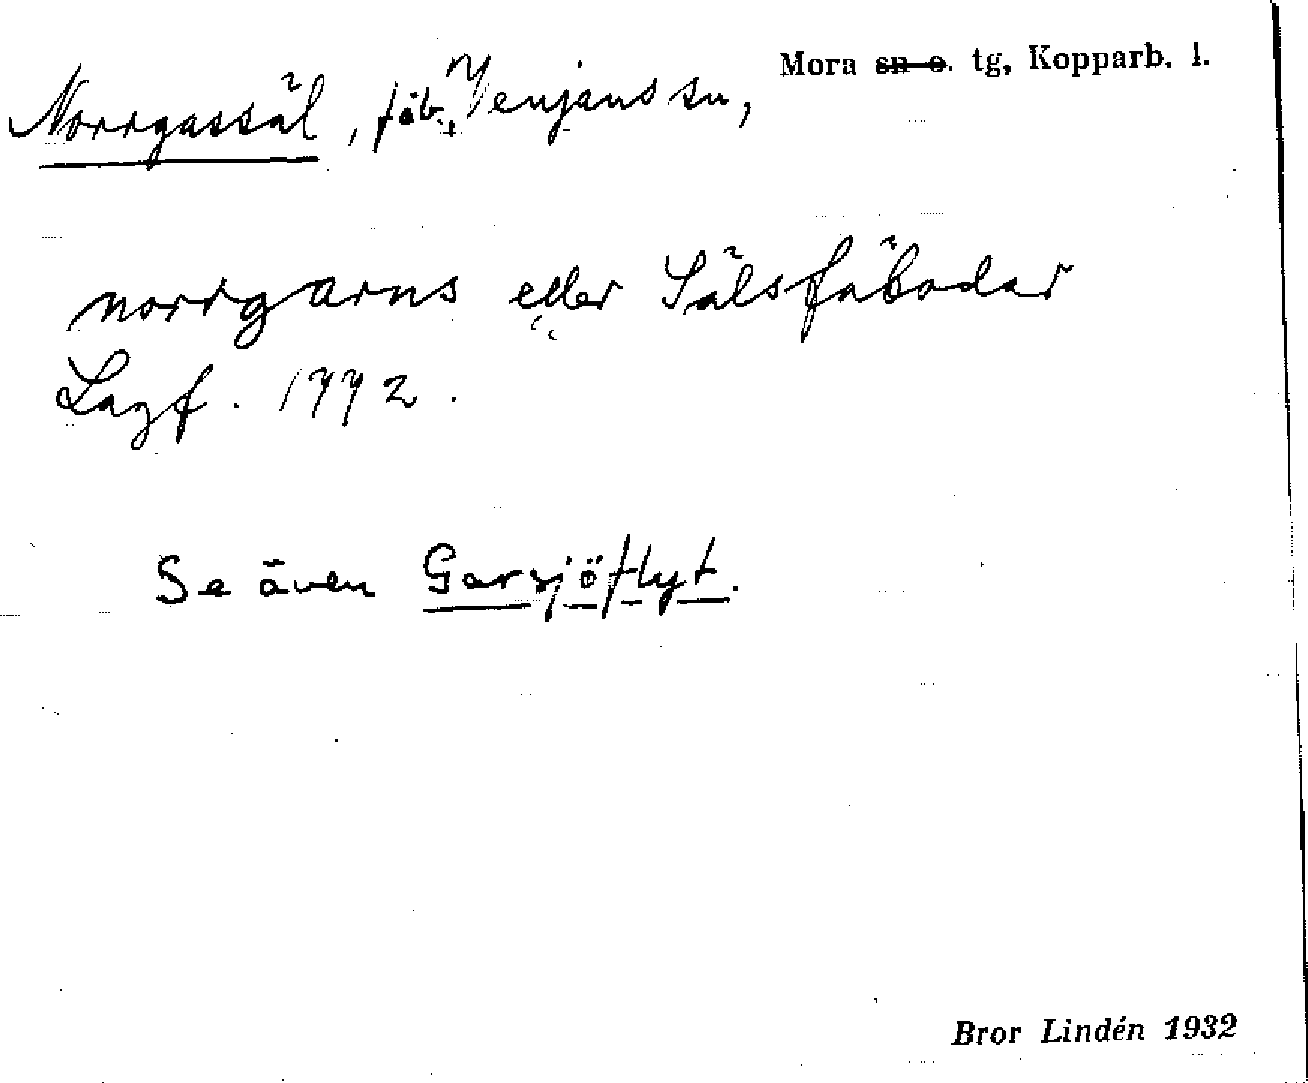 Norrgassäl, fäb., Venjans sn, Mora sn o. tg, Kopparb. l.
norrgarns eller Sälsfäbodar
Lagf. 1772.
Se även Garsjöflyt.
Bror Lindén 1932